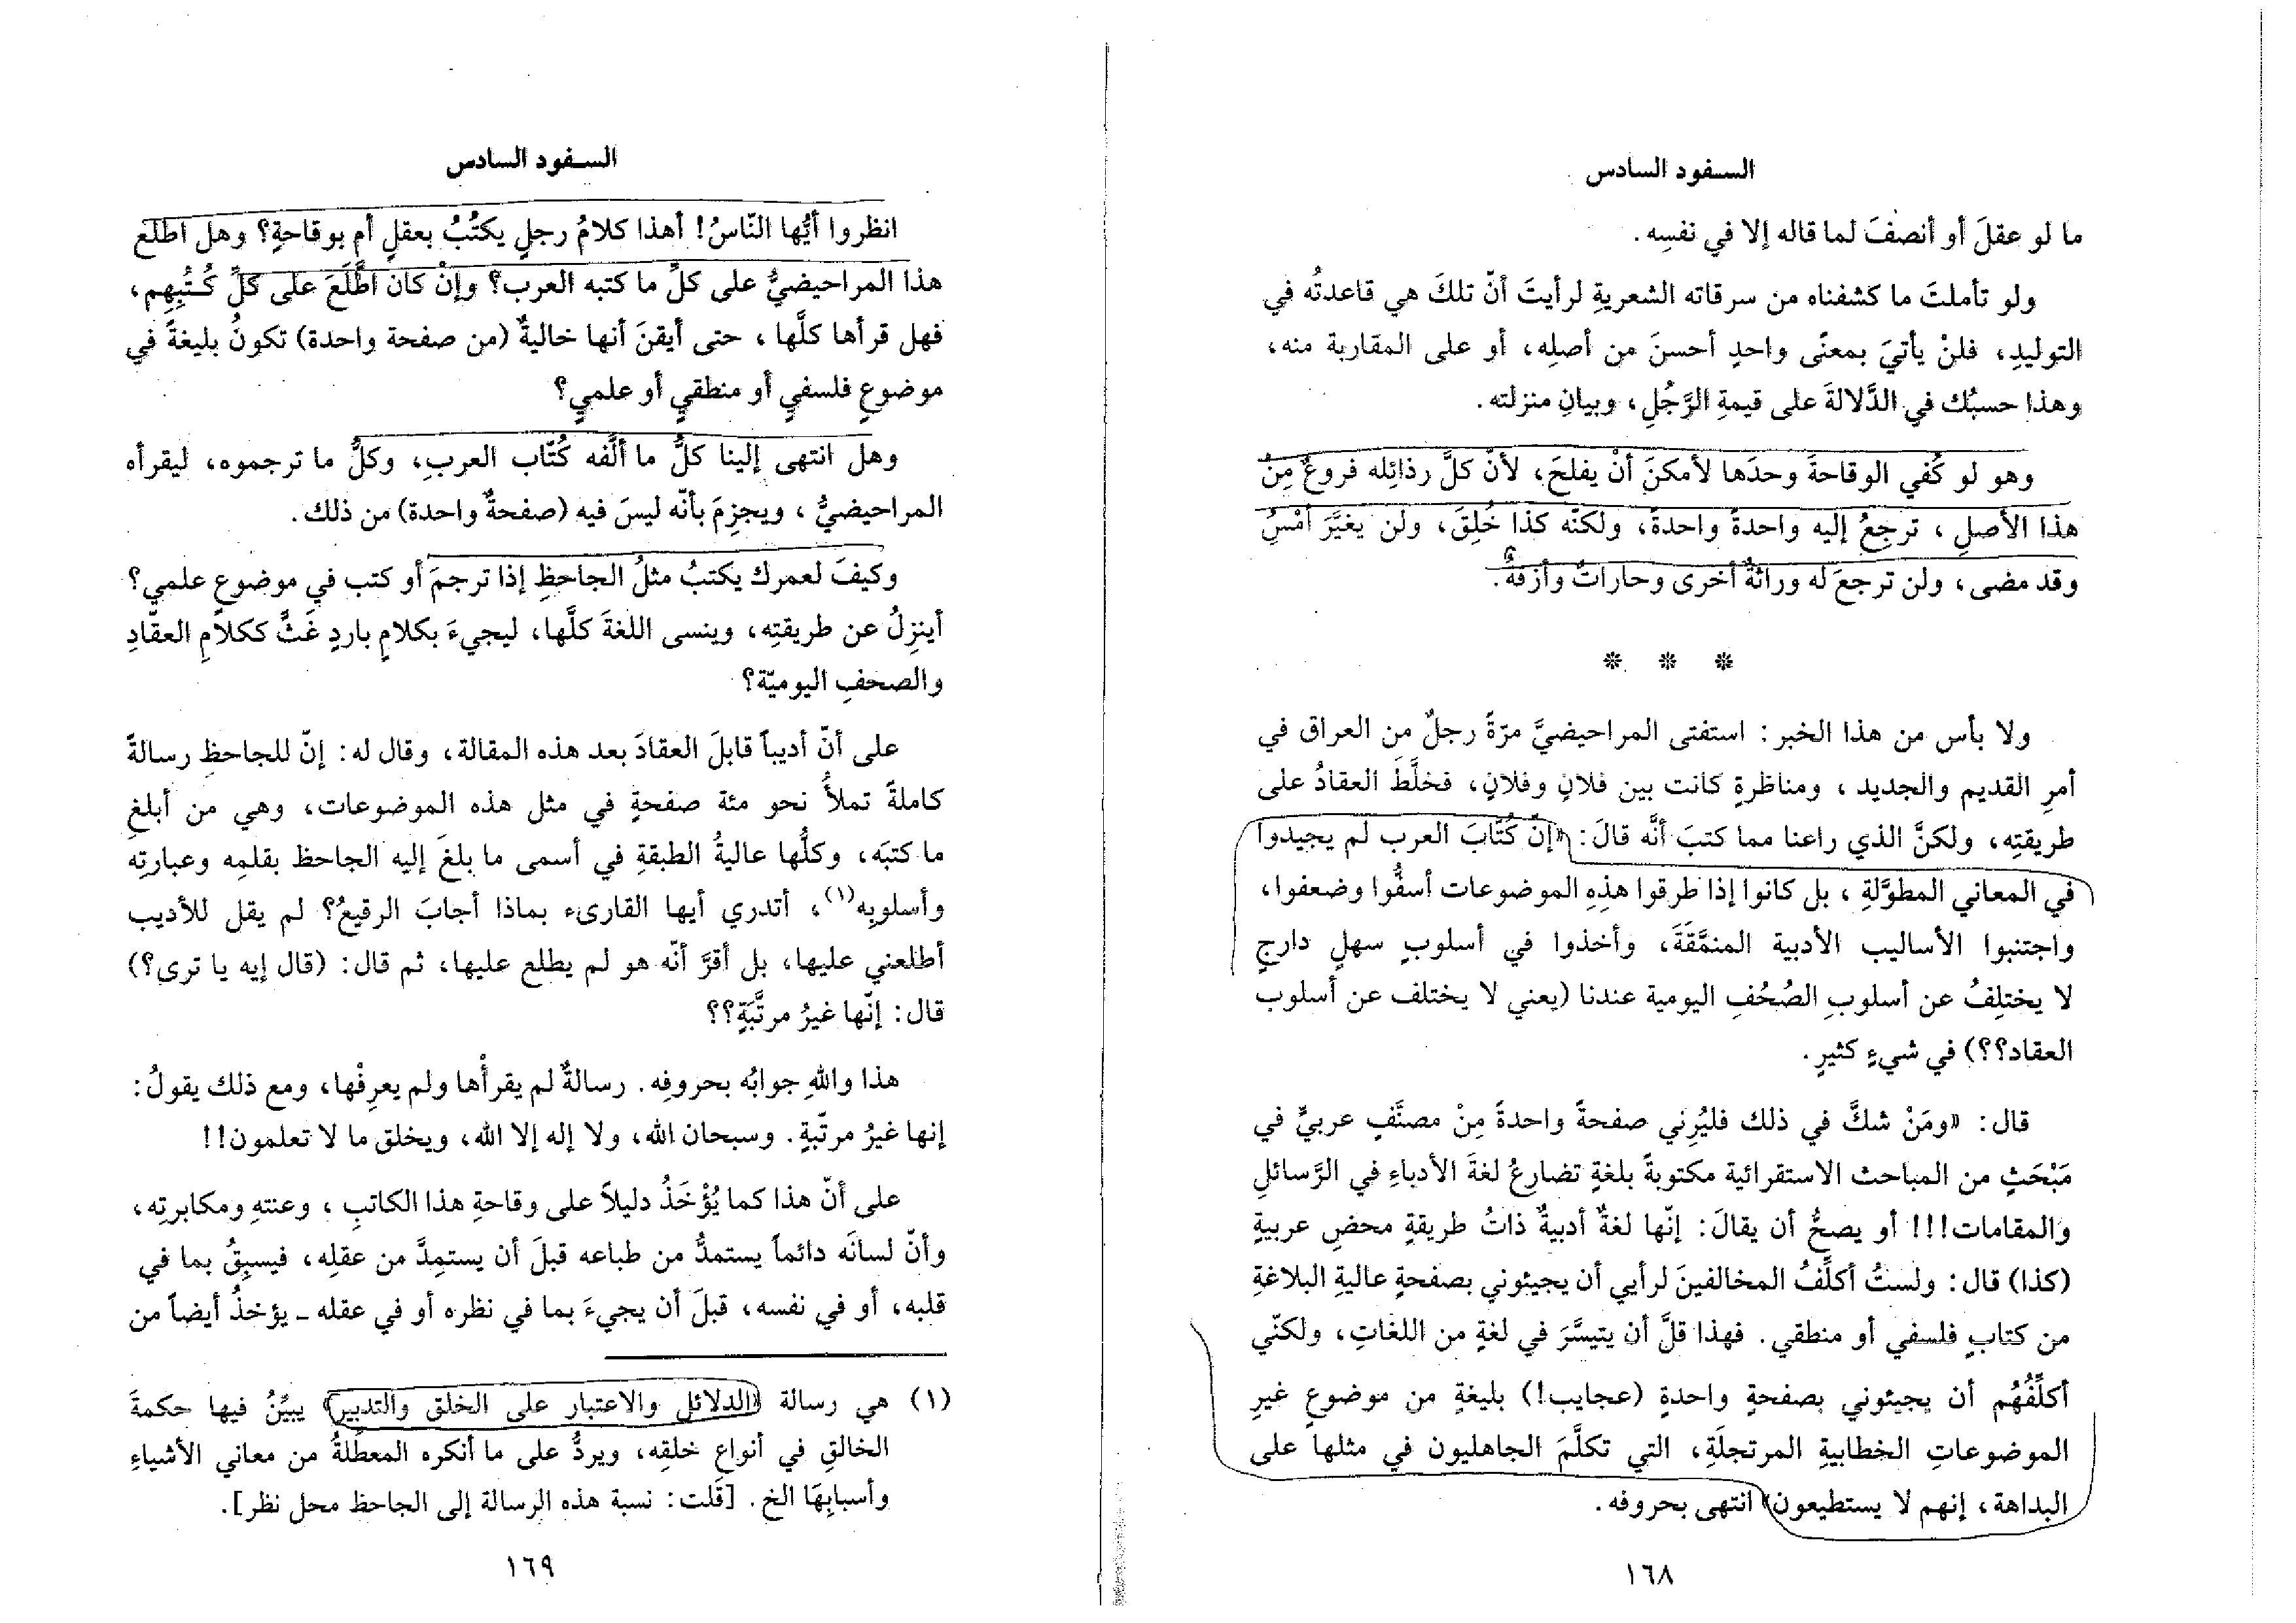 السفود السادس
ما لو عقلَ أو أنصفَ لما قاله إلا في نفسِه .
ولو تأملتَ ما كشفناه من سرقاته الشعريةِ لرأيتَ أنّ تلكَ هي قاعدتُه في
التوليدِ، فلنْ يأتيَ بمعنًى واحدٍ أحسنَ من أصلِه، أو على المقاربة منه،
وهذا حسبُك في الدَّلالةَ على قيمةِ الرَّجُلِ، وبيانِ منزلته.
وهو لو كُفي الوقاحةَ وحدَها لأمكنَ أنْ يفلحَ، لأنّ كلَّ رذائِله فروعٌ مِنْ
هذا الأصلِ، ترجِعُ إليه واحدةً واحدةً، ولكنّه كذا خُلِقَ، ولن يغيَّرَ أمْسُ
وقد مضى، ولن ترجعَ له وراثةٌ أخرى وحاراتٌ وأزقةٌ.
* * *
ولا بأس من هذا الخبر: استفتى المراحيضيَّ مرّةً رجلٌ من العراق في
أمرِ القديم والجديد، ومناظرةٍ كانت بين فلانٍ وفلانٍ، فخلَّطَ العقادُ على
طريقتِه، ولكنَّ الذي راعنا مما كتبَ أنَّه قالَ: «إنّ كُتَّابَ العرب لم يجيدوا
في المعاني المطوَّلةِ، بل كانوا إذا طرقوا هذِهِ الموضوعات أسفُّوا وضعفوا،
واجتنبوا الأساليب الأدبية المنمَّقَةَ، وأخذوا في أسلوبٍ سهلٍ دارجٍ
لا يختلِفُ عن أسلوبِ الصُحُفِ اليومية عندنا (يعني لا يختلف عن أسلوب
العقاد؟؟) في شيءٍ كثيرٍ.
قال: «ومَنْ شكَّ في ذلك فليُرِني صفحةً واحدةً مِنْ مصنَّفٍ عربيٍّ في
مَبْحَثٍ من المباحث الاستقرائية مكتوبةً بلغةٍ تضارعُ لغةَ الأدباءِ في الرَّسائلِ
والمقامات!!! أو يصحُّ أن يقالَ: إنّها لغةٌ أدبيةٌ ذاتُ طريقةٍ محضِ عربيةٍ
(كذا) قال: ولستُ أكلِّفُ المخالفينَ لرأيي أن يجيئوني بصفحةٍ عاليةِ البلاغةِ
من كتابٍ فلسفي أو منطقي. فهذا قلَّ أن يتيسَّرَ في لغةٍ من اللغاتِ، ولكنّي
أكلِّفُهُم أن يجيئوني بصفحةٍ واحدةٍ (عجايب!) بليغةٍ من موضوعٍ غيرِ
الموضوعاتِ الخطابيةِ المرتجلَةِ، التي تكلَّمَ الجاهليون في مثلها على
البداهة، إنهم لا يستطيعون» انتهى بحروفه.
١٦٨
السفود السادس
انظروا أيُّها النّاسُ! أهذا كلامُ رجلٍ يكتُبُ بعقلٍ أم بوقاحةٍ؟ وهل اطلع
هذا المراحيضيُّ على كلِّ ما كتبه العرب؟ وإنْ كان اطَّلَعَ على كلِّ كُتُبِهِم،
فهل قرأها كلَّها، حتى أيقنَ أنها خاليةٌ (من صفحة واحدة) تكونُ بليغةً في
موضوعٍ فلسفيٍ أو منطقيٍ أو علميٍ؟
وهل انتهى إلينا كلُّ ما ألَّفه كُتّاب العربِ، وكلُّ ما ترجموه، ليقرأه
المراحيضيُّ، ويجزِمَ بأنّه ليسَ فيه (صفحةٌ واحدة) من ذلك.
وكيفَ لعمرك يكتبُ مثلُ الجاحظِ إذا ترجمَ أو كتب في موضوعٍ علمي؟
أينزِلُ عن طريقتِه، وينسى اللغةَ كلَّها، ليجيءَ بكلامٍ باردٍ غَثٍّ ككلامِ العقّادِ
والصحفِ اليوميّة؟
على أنّ أديباً قابلَ العقادَ بعد هذه المقالة، وقال له: إنّ للجاحظِ رسالةً
كاملةً تملأُ نحو مئة صفحةٍ في مثل هذه الموضوعات، وهي من أبلغِ
ما كتبَه، وكلُّها عاليةُ الطبقةِ في أسمى ما بلغَ إليه الجاحظ بقلمِه وعبارتِه
وأسلوبِه(١)، أتدري أيها القارىء بماذا أجابَ الرقيعُ؟ لم يقل للأديب
أطلعني عليها، بل أقرَّ أنّه هو لم يطلع عليها، ثم قال: (قال إيه يا ترى؟)
قال: إنّها غيرُ مرتَّبَةٍ؟؟
هذا واللهِ جوابُه بحروفِه. رسالةٌ لم يقرأْها ولم يعرِفْها، ومع ذلك يقولُ:
إنها غيرُ مرتّبةٍ. وسبحان الله، ولا إله إلا الله، ويخلق ما لا تعلمون!!
على أنّ هذا كما يُؤْخَذُ دليلاً على وقاحةِ هذا الكاتبِ، وعنتهِ ومكابرتِه،
وأنّ لسانَه دائماً يستمدُّ من طباعه قبلَ أن يستمِدَّ من عقلِه، فيسبِقُ بما في
قلبه، أو في نفسه، قبلَ أن يجيءَ بما في نظره أو في عقله ـ يؤخذُ أيضاً من
(١) هي رسالة «الدلائل والاعتبار على الخلق والتدبير» يبيِّنُ فيها حكمةَ
الخالقِ في أنواع خلقِه، ويردُّ على ما أنكره المعطِّلةُ من معاني الأشياءِ
وأسبابِهَا الخ. [قلت: نسبة هذه الرسالة إلى الجاحظ محل نظر].
١٦٩